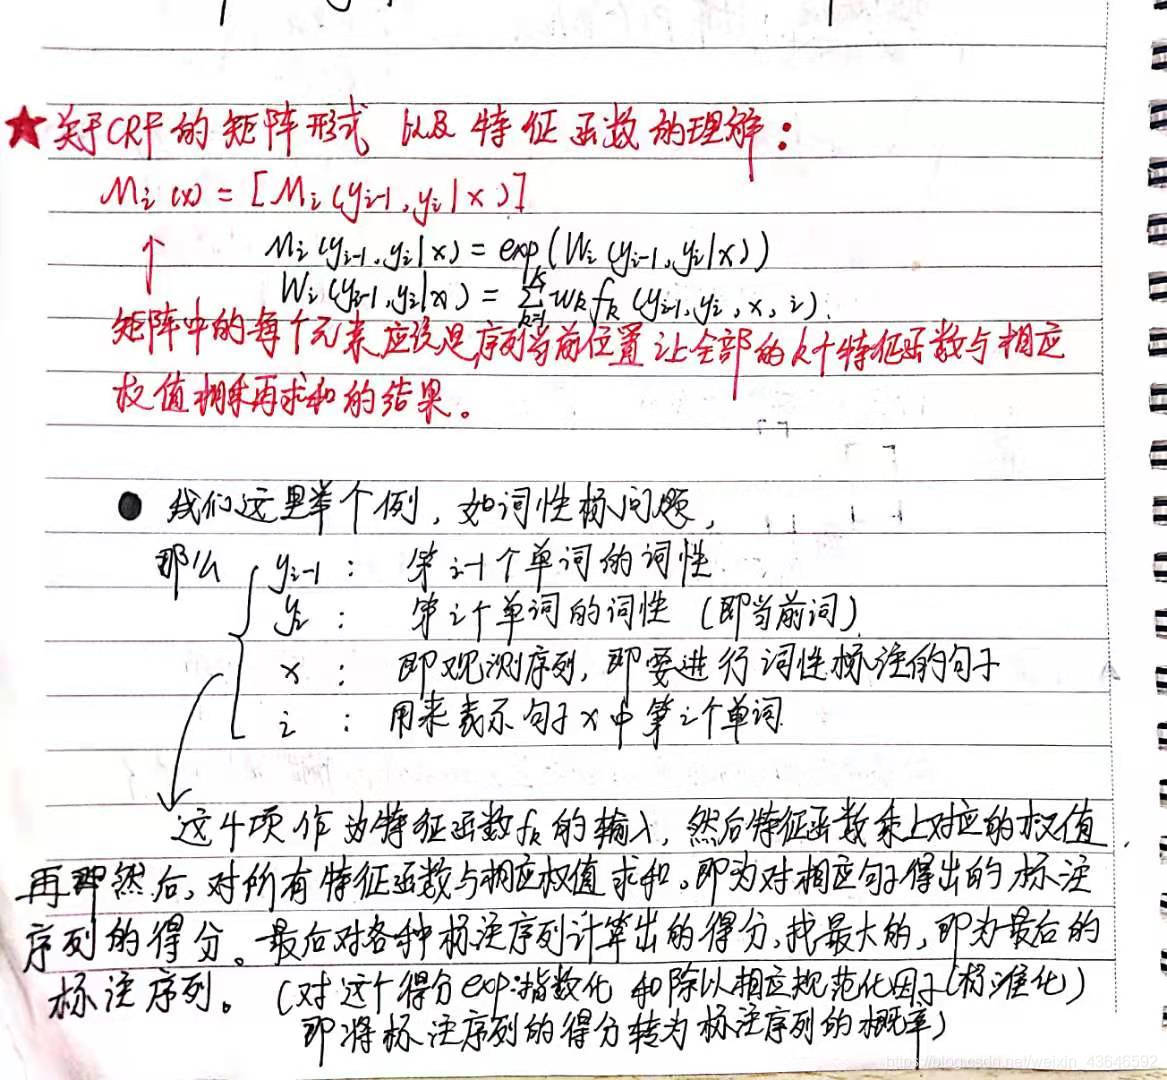 ★关于CRF的矩阵形式 以及 特征函数的理解：
Mi(x) = [Mi(yi-1, yi | x)]
Mi(yi-1, yi | x) = exp(Wi(yi-1, yi | x))
Wi(yi-1, yi | x) = ∑_{k=1}^{K} wk fk(yi-1, yi, x, i).
矩阵中的每个元素应该是序列当前位置让全部的k个特征函数与相应
权值相乘再求和的结果。
● 我们这里举个例，如词性标问题，
那么 yi-1 ： 第i-1个单词的词性
yi ： 第i个单词的词性 (即当前词)
x ： 即观测序列，即要进行词性标注的句子
i ： 用来表示句子x中第i个单词
这4项作为特征函数fk的输入，然后特征函数乘上对应的权值，
再然后，对所有特征函数与相应权值求和。即为对相应句子得出的标注
序列的得分。最后对各种标注序列计算出的得分，找最大的，即为最后的
标注序列。(对这个得分exp指数化 和除以相应规范化因子(标准化)
即将标注序列的得分转为标注序列的概率)
https://blog.csdn.net/weixin_43646592